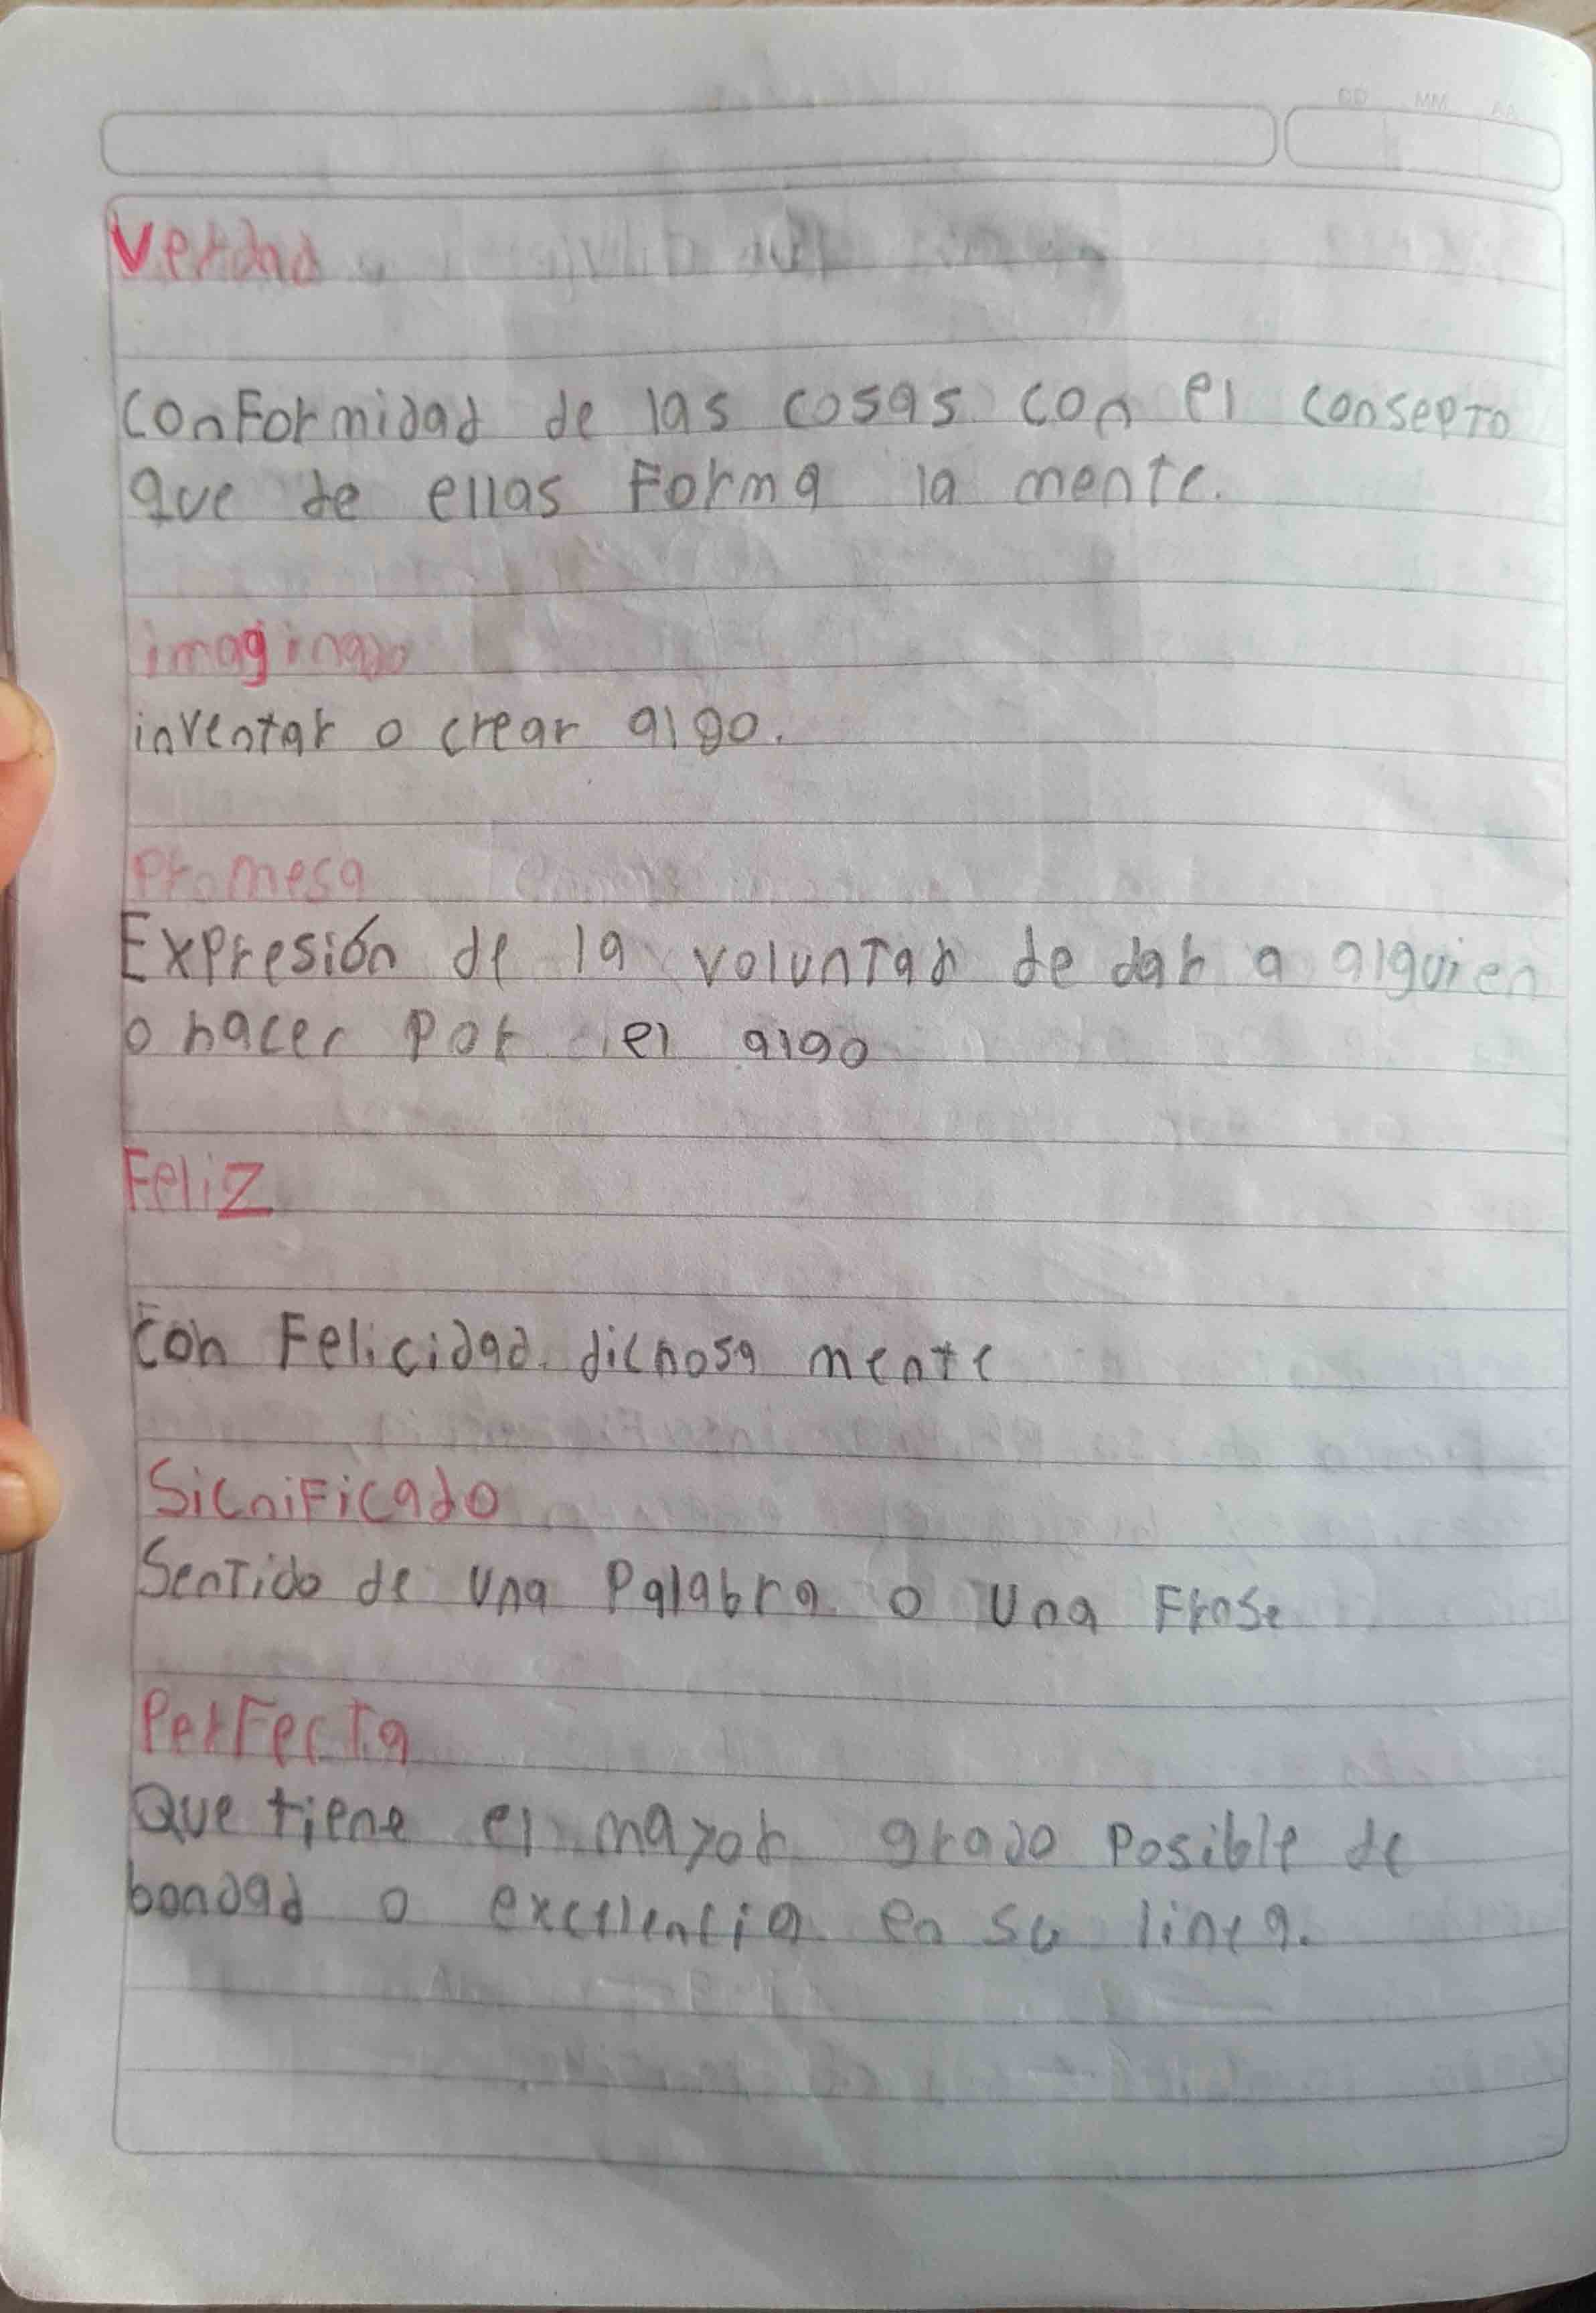 DD MM AA
Verdad
conFormidad de las cosas con el consepto
que de ellas Forma la mente.
imaginado
inventar o crear algo.
Promesa
Expresión de la voluntad de dar a alguien
o hacer por el algo
Feliz
con Felicidad. dichosa mente
SicniFicado
Sentido de una Palabra o una Frase
PerFecta
Que tiene el mayor grado Posible de
bondad o excelencia en su linea.